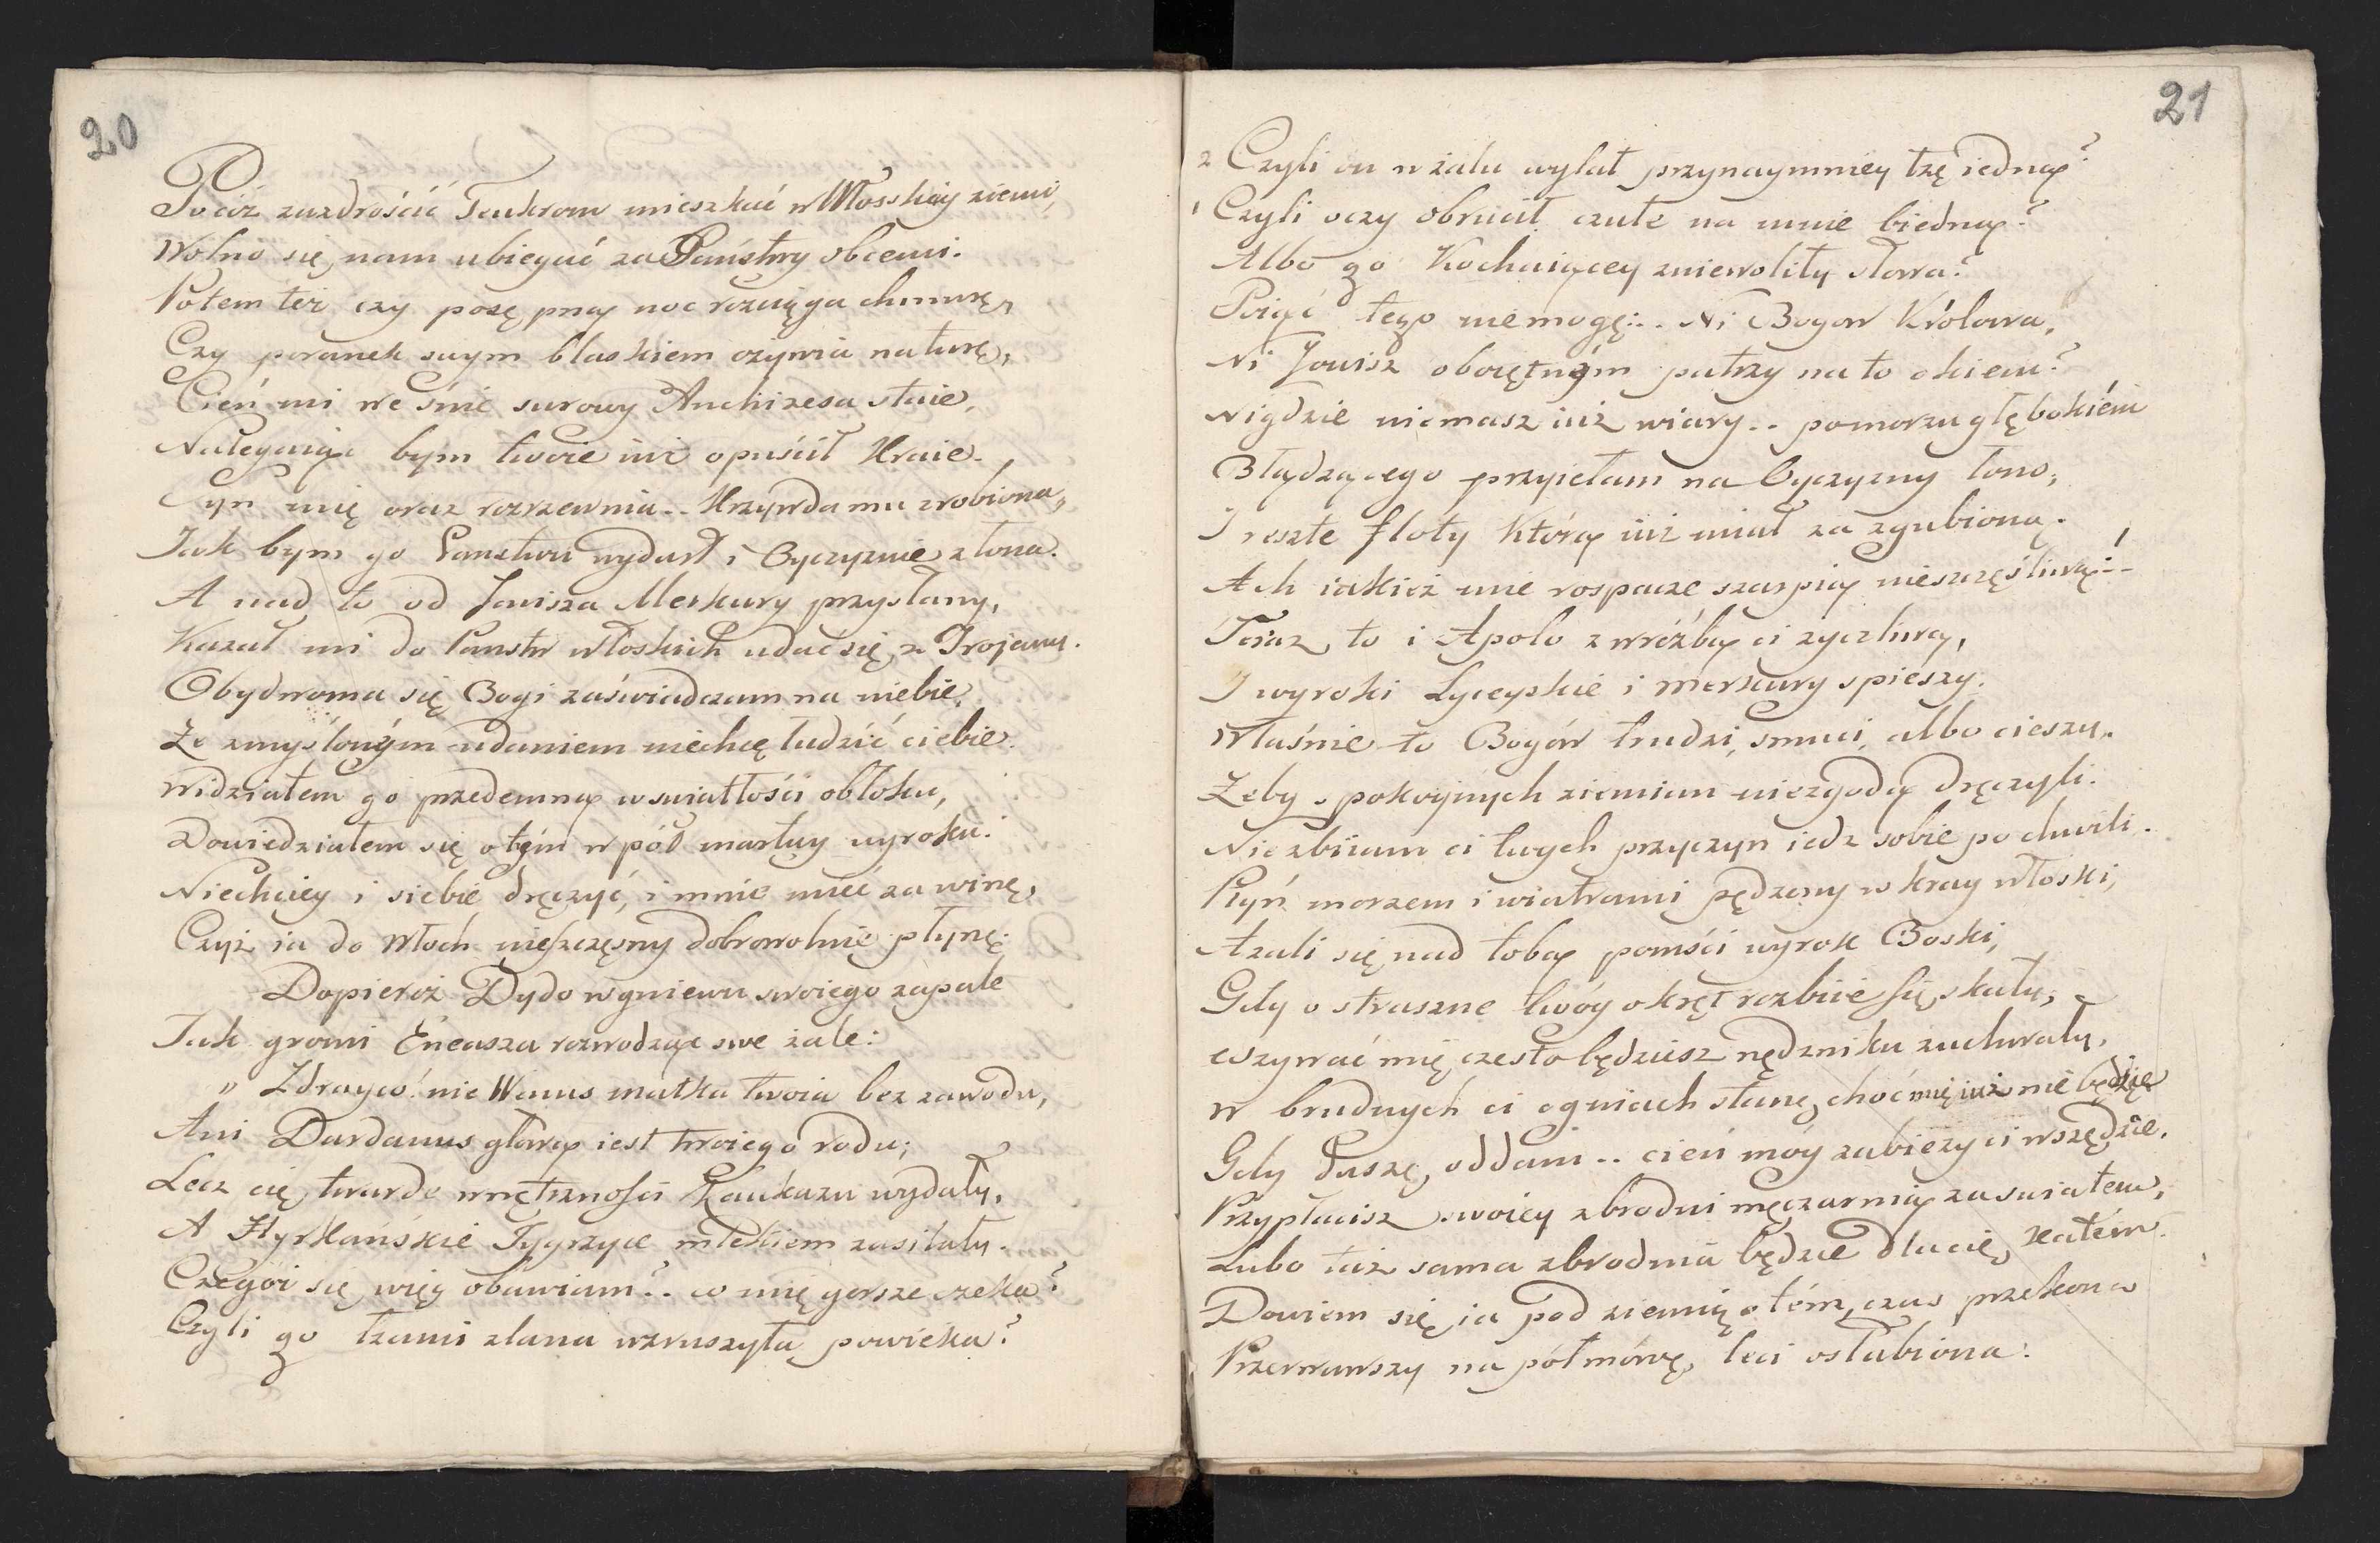 20
Pocóż zazdrościć Teukrom mieszkać w Włosskiey ziemi,
Wolno się nam ubiegać za Państwy obcemi.
Potem też czy posępną noc rozciąga chmurę,
Czy poranek swym blaskiem ożywia naturę,
Cień mi we śnie surowy Anchizesa staie,
Nalegaiąc bym twoie iuż opuścił Kraie.
Syn mię oraz rozrzewnia.. Krzywda mu zrobiona,
Jak bym go Panstwu wydarł i Oyczyznie z łona.
A nad to od Jowisza Merkury przysłany,
Kazał mi do Panstw włoskich udać się z Trojany.
Obydwoma się Bogi zaświadczam na niebie,
Że zmyślonym udaniem niechcę łudzić ciebie.
Widziałem go przedemną w swiatłości obłoku,
Dowiedziałem się o tym w pół martwy wyroku.
Niechciey i siebie dręczyć, i mnie mieć za winę,
Czyż ia do Włoch nieszczęsny dobrowolnie płynę:
Dopieroż Dydo w gniewu swoiego zapale
Tak gromi Eneasza rozwodząc swe żale:
„ Zdrayco! nie Wenus matka twoia bez zawodu,
Ani Dardanus głową iest twoiego rodu;
Lecz cię twarde wnętrzności Kaukazu wydały,
A Hyrkańskie Tygrzyce mlekiem zasilały.
Czegoż się więc obawiam?.. co mię gorsze czeka?
Czyli go łzami zlana wzruszyła powieka?
21
2 Czyli on w żalu wylał przynaymniey łzę iedną?
1 Czyli oczy obrucił czułe na mnie biedną?
Albo go Kochaiącey zniewoliły słowa?
Poiąć tego niemogę:.. Ni Bogow Królowa,
Ni Jowisz oboiętnym patrzy na to okiem?
Nigdzie niemasz iuż wiary.. pomorzu głębokiém
Błądzącego przyiełam na Oyczyzny łono,
I reszte floty którą iuż miał za zgubioną.
Ach iakież mie rospacze szarpią nieszczęśliwą!:..
Teraz to i Apolo z wróżbą ci życzliwą,
I wyroki Lyceyskie i merkury spieszy.
Właśnie to Bogów trudzi, smuci, albo cieszy.
Żeby spokoynych ziemian niezgodą dręczyli.
Nie zbiiam ci twych przyczyn iedz sobie po chwili.
Płyń morzem i wiatrami pędzony w kray włoski,
Azali się nad tobą pomści wyrok Boski,
Gdy o straszne twóy okręt rozbiie się skały,
wzywać mię czesto będziesz nędzniku zuchwały,
W brudnych ci ogniach stanę choć mię iuż nie będzie
Gdy duszę oddam.. cień móy zabieży ci wszędzie.
Przypłacisz swoiey zbrodni męczarnią za swiatem,
Lubo taż sama zbrodnia będzie dla cię katém.
Dowiem się ia pod ziemią o tém, czas przekona
Przerwawszy na pół mówę leci osłabiona.